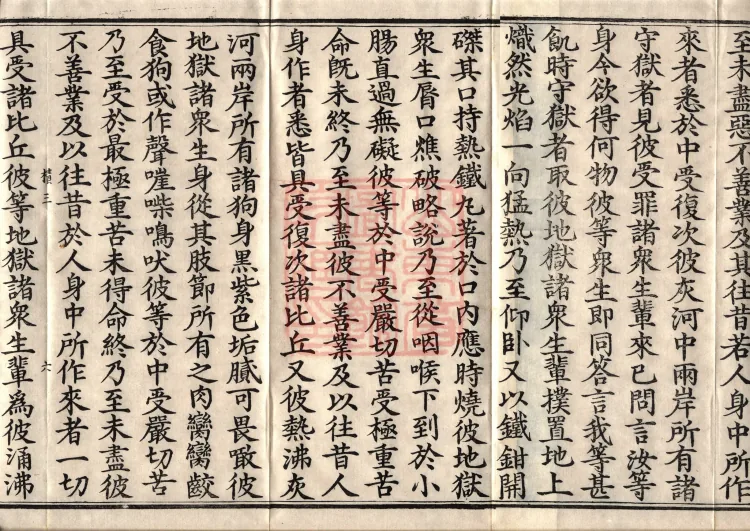 至未盡惡不善業及其往昔若人身中所作
來者悉於中受復次彼灰河中兩岸所有諸
守獄者見彼受罪諸衆生輩來已問言汝等
身今欲得何物彼等衆生即同答言我等甚
飢時守獄者取彼地獄諸衆生輩撲置地上
熾然光焰一向猛熱乃至仰臥又以鐵鉗開
磔其口持熱鐵丸著於口內應時燒彼地獄
衆生脣口燋破略說乃至從咽喉下到於小
腸直過無礙彼等於中受嚴切苦受極重苦
命旣未終乃至未盡彼不善業及以往昔人
身作者悉皆具受復次諸比丘又彼熱沸灰
河兩岸所有諸狗身黑紫色垢膩可畏噉彼
地獄諸衆生身從其肢節所有之肉臠臠齩
食狗或作聲嘊喍鳴吠彼等於中受嚴切苦
乃至受於最極重苦未得命終乃至未盡彼
不善業及以往昔於人身中所作來者一切
三 六
具受諸比丘彼等地獄諸衆生輩爲彼涌沸